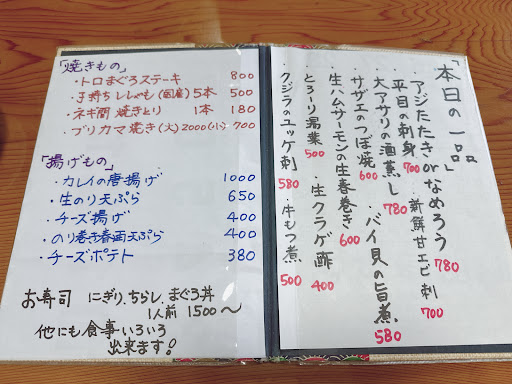 「焼きもの」
・トロまぐろステーキ 800
・子持ちししゃも(国産) 5本 500
・ネギ間 焼きとり 1本 180
・ブリカマ焼き(大)2000 (小)700
「揚げもの」
・カレイの唐揚げ 1000
・生のり天ぷら 650
・チーズ揚げ 400
・のり巻き春雨天ぷら 400
・チーズポテト 380
お寿司 にぎり、ちらし、まぐろ丼
1人前 1500〜
他にも食事いろいろ
出来ます!
「本日の一品」
・アジたたき or なめろう 780
・平目の刺身 700 ・新鮮甘エビ刺 700
・大アサリの酒蒸し 780
・サザエのつぼ焼 600 ・バイ貝の旨煮 580
・生ハムサーモンの生春巻き 600
・とろーり湯葉 500 ・生クラゲ酢 400
・クジラのユッケ刺 580 ・牛もつ煮 500